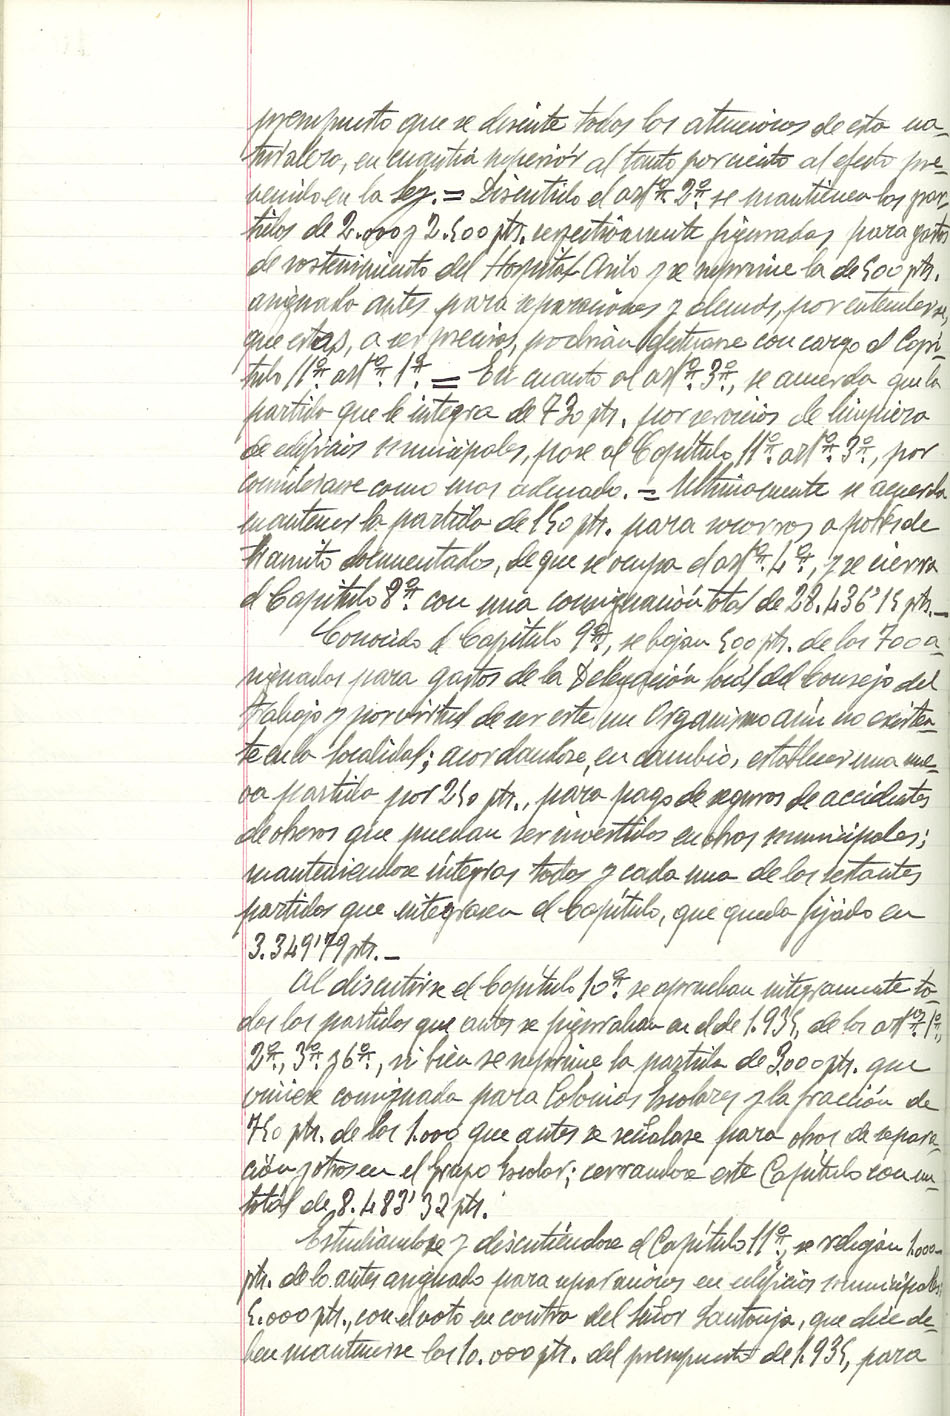 presupuesto que se discute todas las atenciones de esta na-
turaleza, en cuantía superior al tanto por ciento al efecto pre-
venido en la Ley. = Discutido el artº. 2º. se mantienen las par-
tidas de 2.000 y 2.500 pts. respectivamente figuradas para gastos
de sostenimiento del Hospital Asilo y se suprime la de 500 pts.
asignada antes para reparaciones y demás, por entenderse,
que estas, a ser precisas, podrían efectuarse con cargo al Capí-
tulo 11º. artº. 1º. = En cuanto al artº. 3º., se acuerda que la
partida que le integra de 730 pts. por servicios de limpieza
de edificios municipales, pase al Capítulo 11º. artº. 3º., por
considerarse como mas adecuado. = Ultimamente se acuerda
mantener la partida de 150 pts. para socorros a pobres de
transito documentados, de que se ocupa el artº. 4º., y se cierra
el Capitulo 8º. con una consignación total de 28.436'15 pts.—
Conocido el Capítulo 9º., se bajan 500 pts. de las 700 a-
signadas para gastos de la Delegación local del Consejo del
Trabajo y por virtud de ser este un Organismo aún no existen-
te en la localidad; acordandose, en cambio, establecer una nue-
va partida por 250 pts., para pago de seguros de accidentes
de obreros que puedan ser invertidos en obras municipales;
manteniendose integras todas y cada una de las restantes
partidas que integrasen el Capítulo, que queda fijado en
3.349'79 pts.—
Al discutirse el Capítulo 10º. se aprueban integramente to-
das las partidas que antes se figuraban en el de 1.935, de los artºs. 1º.,
2º., 3º. y 6º., si bien se suprime la partida de 3.000 pts. que
viniese consignada para Colonias Escolares y la fracción de
750 pts. de las 1.000 que antes se señalase para obras de repara-
ción y otras en el Grupo Escolar; cerrandose este Capítulo con un
total de 8.483'32 pts.
Estudiandose y discutiéndose el Capítulo 11º., se rebajan 1.000
pts. de lo antes asignado para reparaciones en edificios municipales,
5.000 pts., con el voto en contra del Señor Santonja, que dice de-
ben mantenerse las 10.000 pts. del presupuesto de 1.935, para